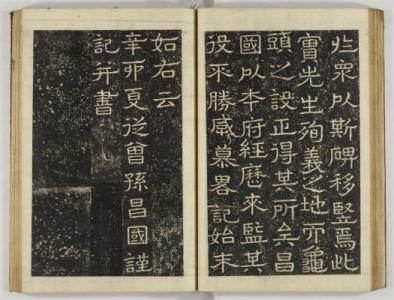 些衆以斯碑移竪焉此
實先生殉義之地而龜
頭之設正得其所矣昌
國以本府經歷來監其
役不勝感慕畧記始末
如右云
辛卯夏從曾孫昌國謹
記幷書